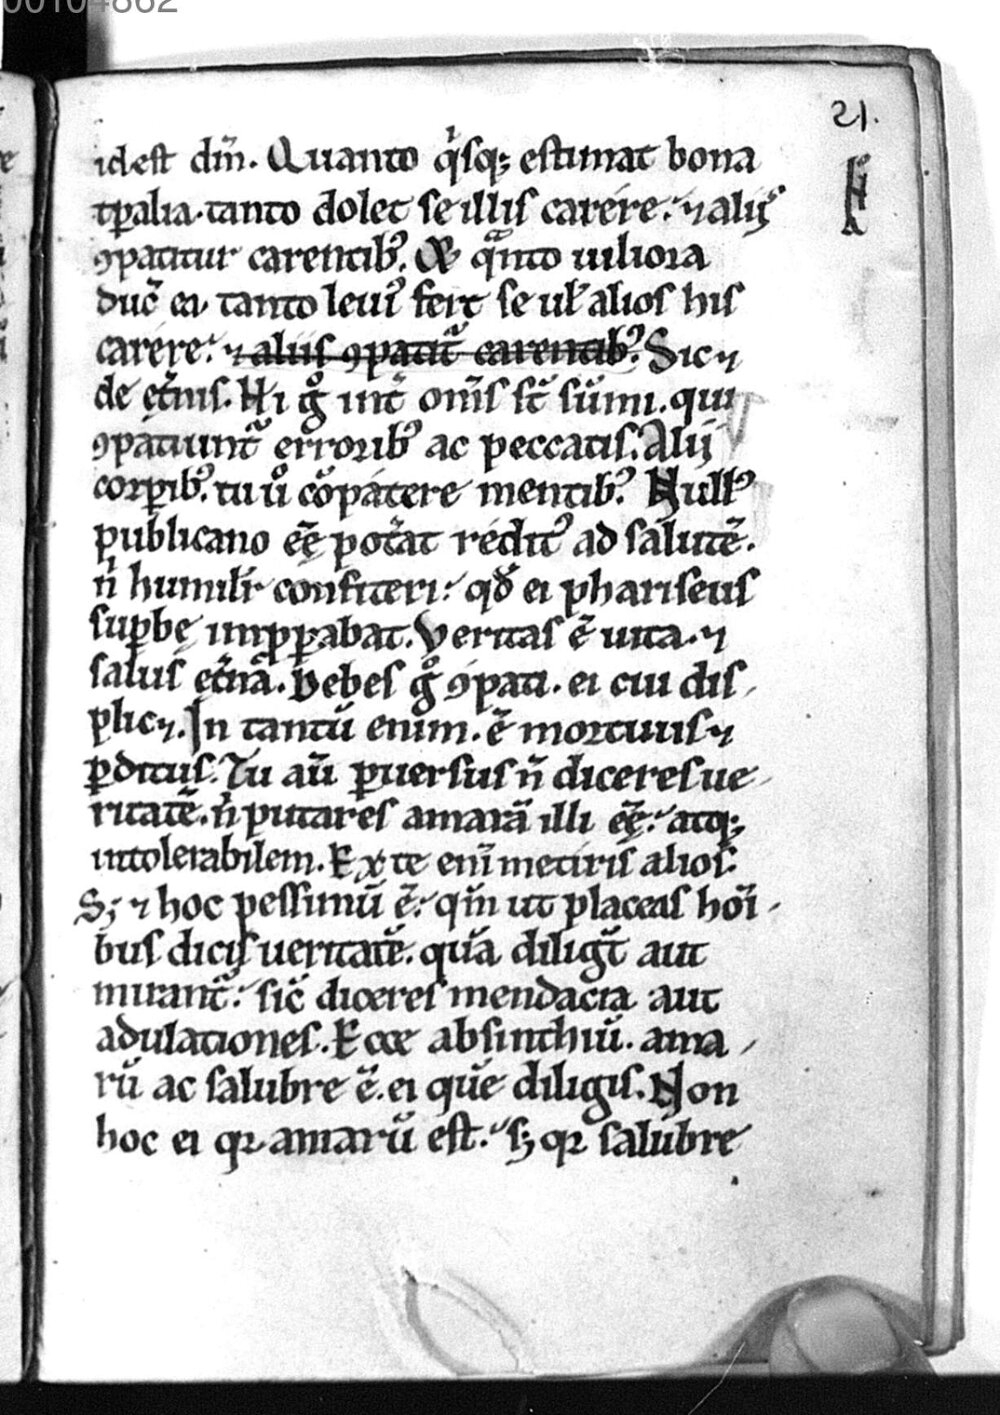 00104862
21.
idest dm̄. Quanto qͥsq; estimat bona
tꝑalia. tanto dolet se illis carere. ⁊ aliiſ
ꝯpatitur carentibꝰ. Et qᵃnto uiliora
duc̄ ea. tanto leuiꝰ fert se uł alios his
carere. ⁊ aliis ꝯpatit᷑ carentibꝰ. Sic ⁊
de et̄nis. Hi gͦ int̄ om̄s st̄ sūmi. qui
ꝯpatiunt᷑ erroribꝰ ac peccatis. Alii
corꝑibꝰ. tu uͦ cōpatere mentibꝰ. Nullꝰ
publicano eę̄ pot̄at reditꝰ ad salutē.
n̄ humilit̄ confiteri. qđ ei phariseus
suꝑbę imꝓꝑabat. Veritas ē uita. ⁊
salus et̄na. Debes gͦ ꝯpati. ei cui dis
plic⁊. In tantū enim. ē mortuus ⁊
ꝑditus. Tu aū ꝑuersus n̄ diceres ue
ritatē. n̄ putares amarā illi eę̄. atq;
intolerabilem. Ex te enī metiris alios.
S; ⁊ hoc pessimū ē. qm̄ ut placeas hoī
bus dicis ueritatē. quā diligt̄ aut
mirant᷑. sic̄ diceres mendacia aut
adulationes. Ecce absinthiū. ama
rū ac salubre ē. ei quē diligis. Non
hoc ei qꝛ amarū est. s; qꝛ salubre